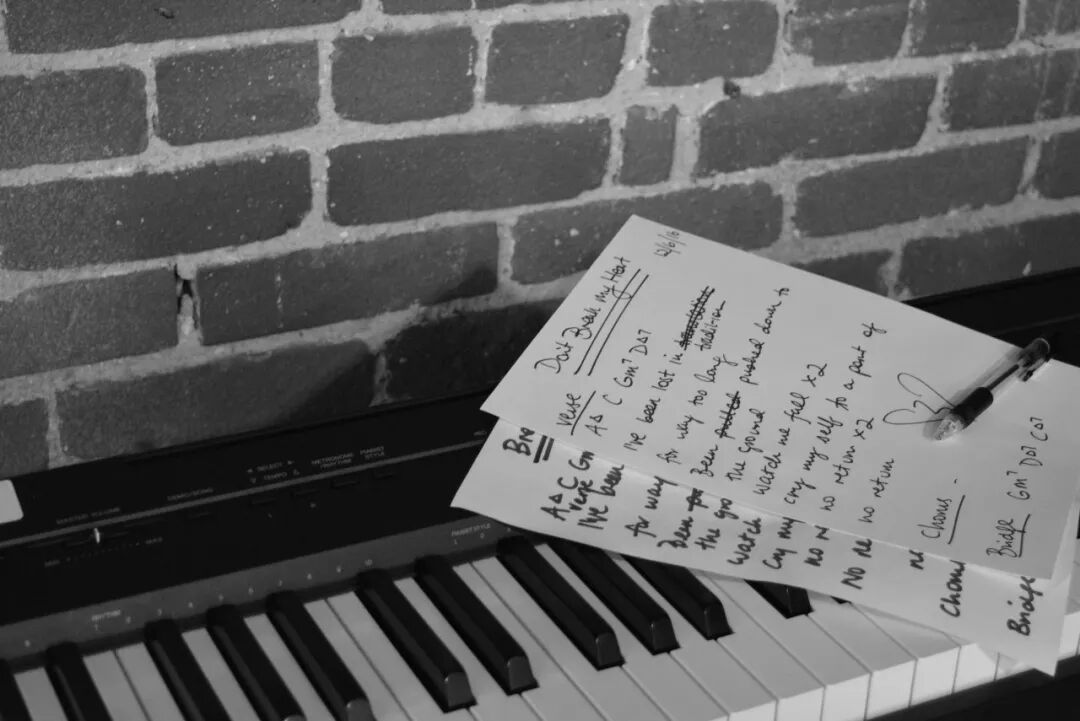 12/6/16
Don't Break My Heart
verse
A△ C Gm7 D△7
I've been lost in
tradition
for way too long
Been pushed down to
the ground
watch me fall x2
cry my self to a point of
no return x2
no return
Chorus -
Bridge Gm7 D△7 C△7
verse
A△ C Gm
I've been
for way
Been
the gro
watch
Cry my
no
No re
Chorus
Bridge
MASTER VOLUME
MIN MAX
DEMO/SONG
SELECT
TEMPO
METRONOME
/RHYTHM
PIANIST
STYLE
RHYTHM
PIANIST STYLE
1 2